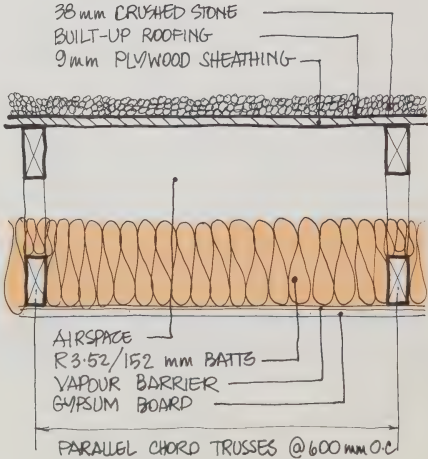 38mm CRUSHED STONE
BUILT-UP ROOFING
9mm PLYWOOD SHEATHING
AIRSPACE
R3.52/152 mm BATTS
VAPOUR BARRIER
GYPSUM BOARD
PARALLEL CHORD TRUSSES @600mm O.C.